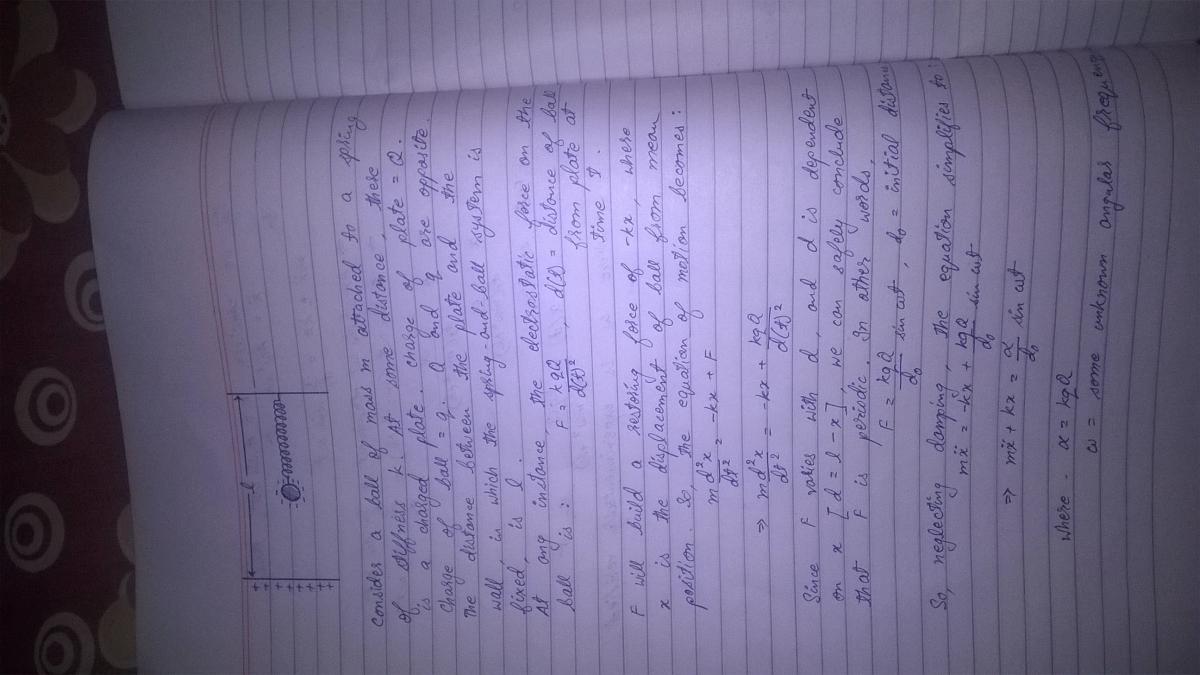 + + + + + + + +
l
Consider a ball of mass m attached to a spring
of stiffness k. At some distance, there
is a charged plate. charge of plate = Q.
Charge of ball = q. Q and q are opposite.
The distance between the plate and the
wall, in which the spring-and-ball system is
fixed, is l.
At any instance, the electrostatic force on the
ball is : F = kqQ / d(t)², d(t) = distance of ball
from plate at
time t.
F will build a restoring force of -kx, where
x is the displacement of ball from mean
position. So, the equation of motion becomes:
m d²x/dt² = -kx + F
⇒ m d²x/dt² = -kx + kqQ/d(t)²
Since F varies with d, and d is dependent
on x [d = l - x], we can safely conclude
that F is periodic. In other words,
F = kqQ/d₀ sin ωt, d₀ = initial distance
So, neglecting damping, the equation simplifies to:
mẍ = -kx + kqQ/d₀ sin ωt
⇒ mẍ + kx = α/d₀ sin ωt
where - α = kqQ
ω = some unknown angular frequency